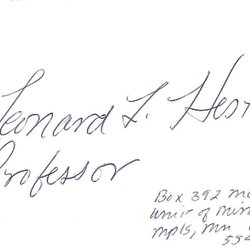 Leonard L. Hes
Professor
Box 392 M
Univ of Minn
Mpls, Mn
554